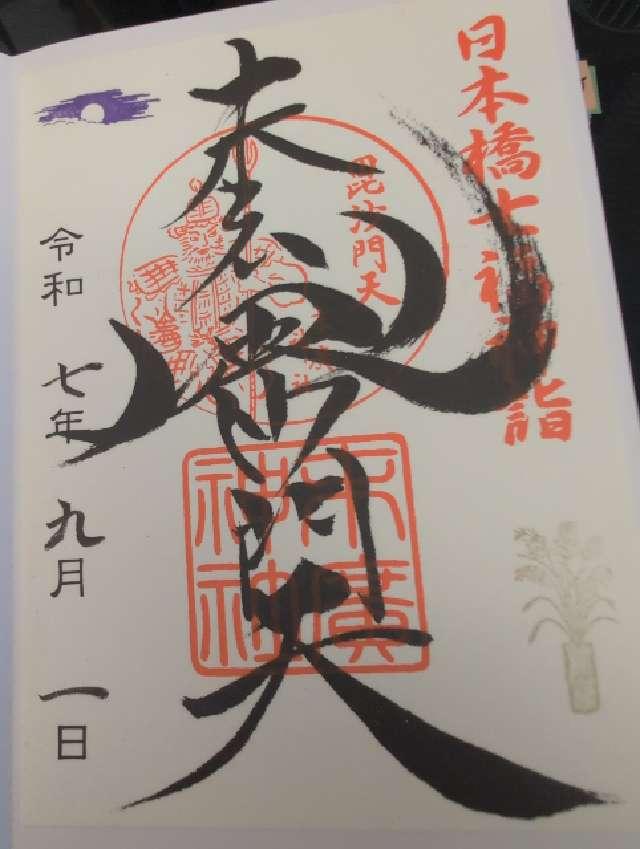 日本橋七福神詣
毘沙門天
末廣神社
大黒
毘沙門天
令和 七年 九月 一日